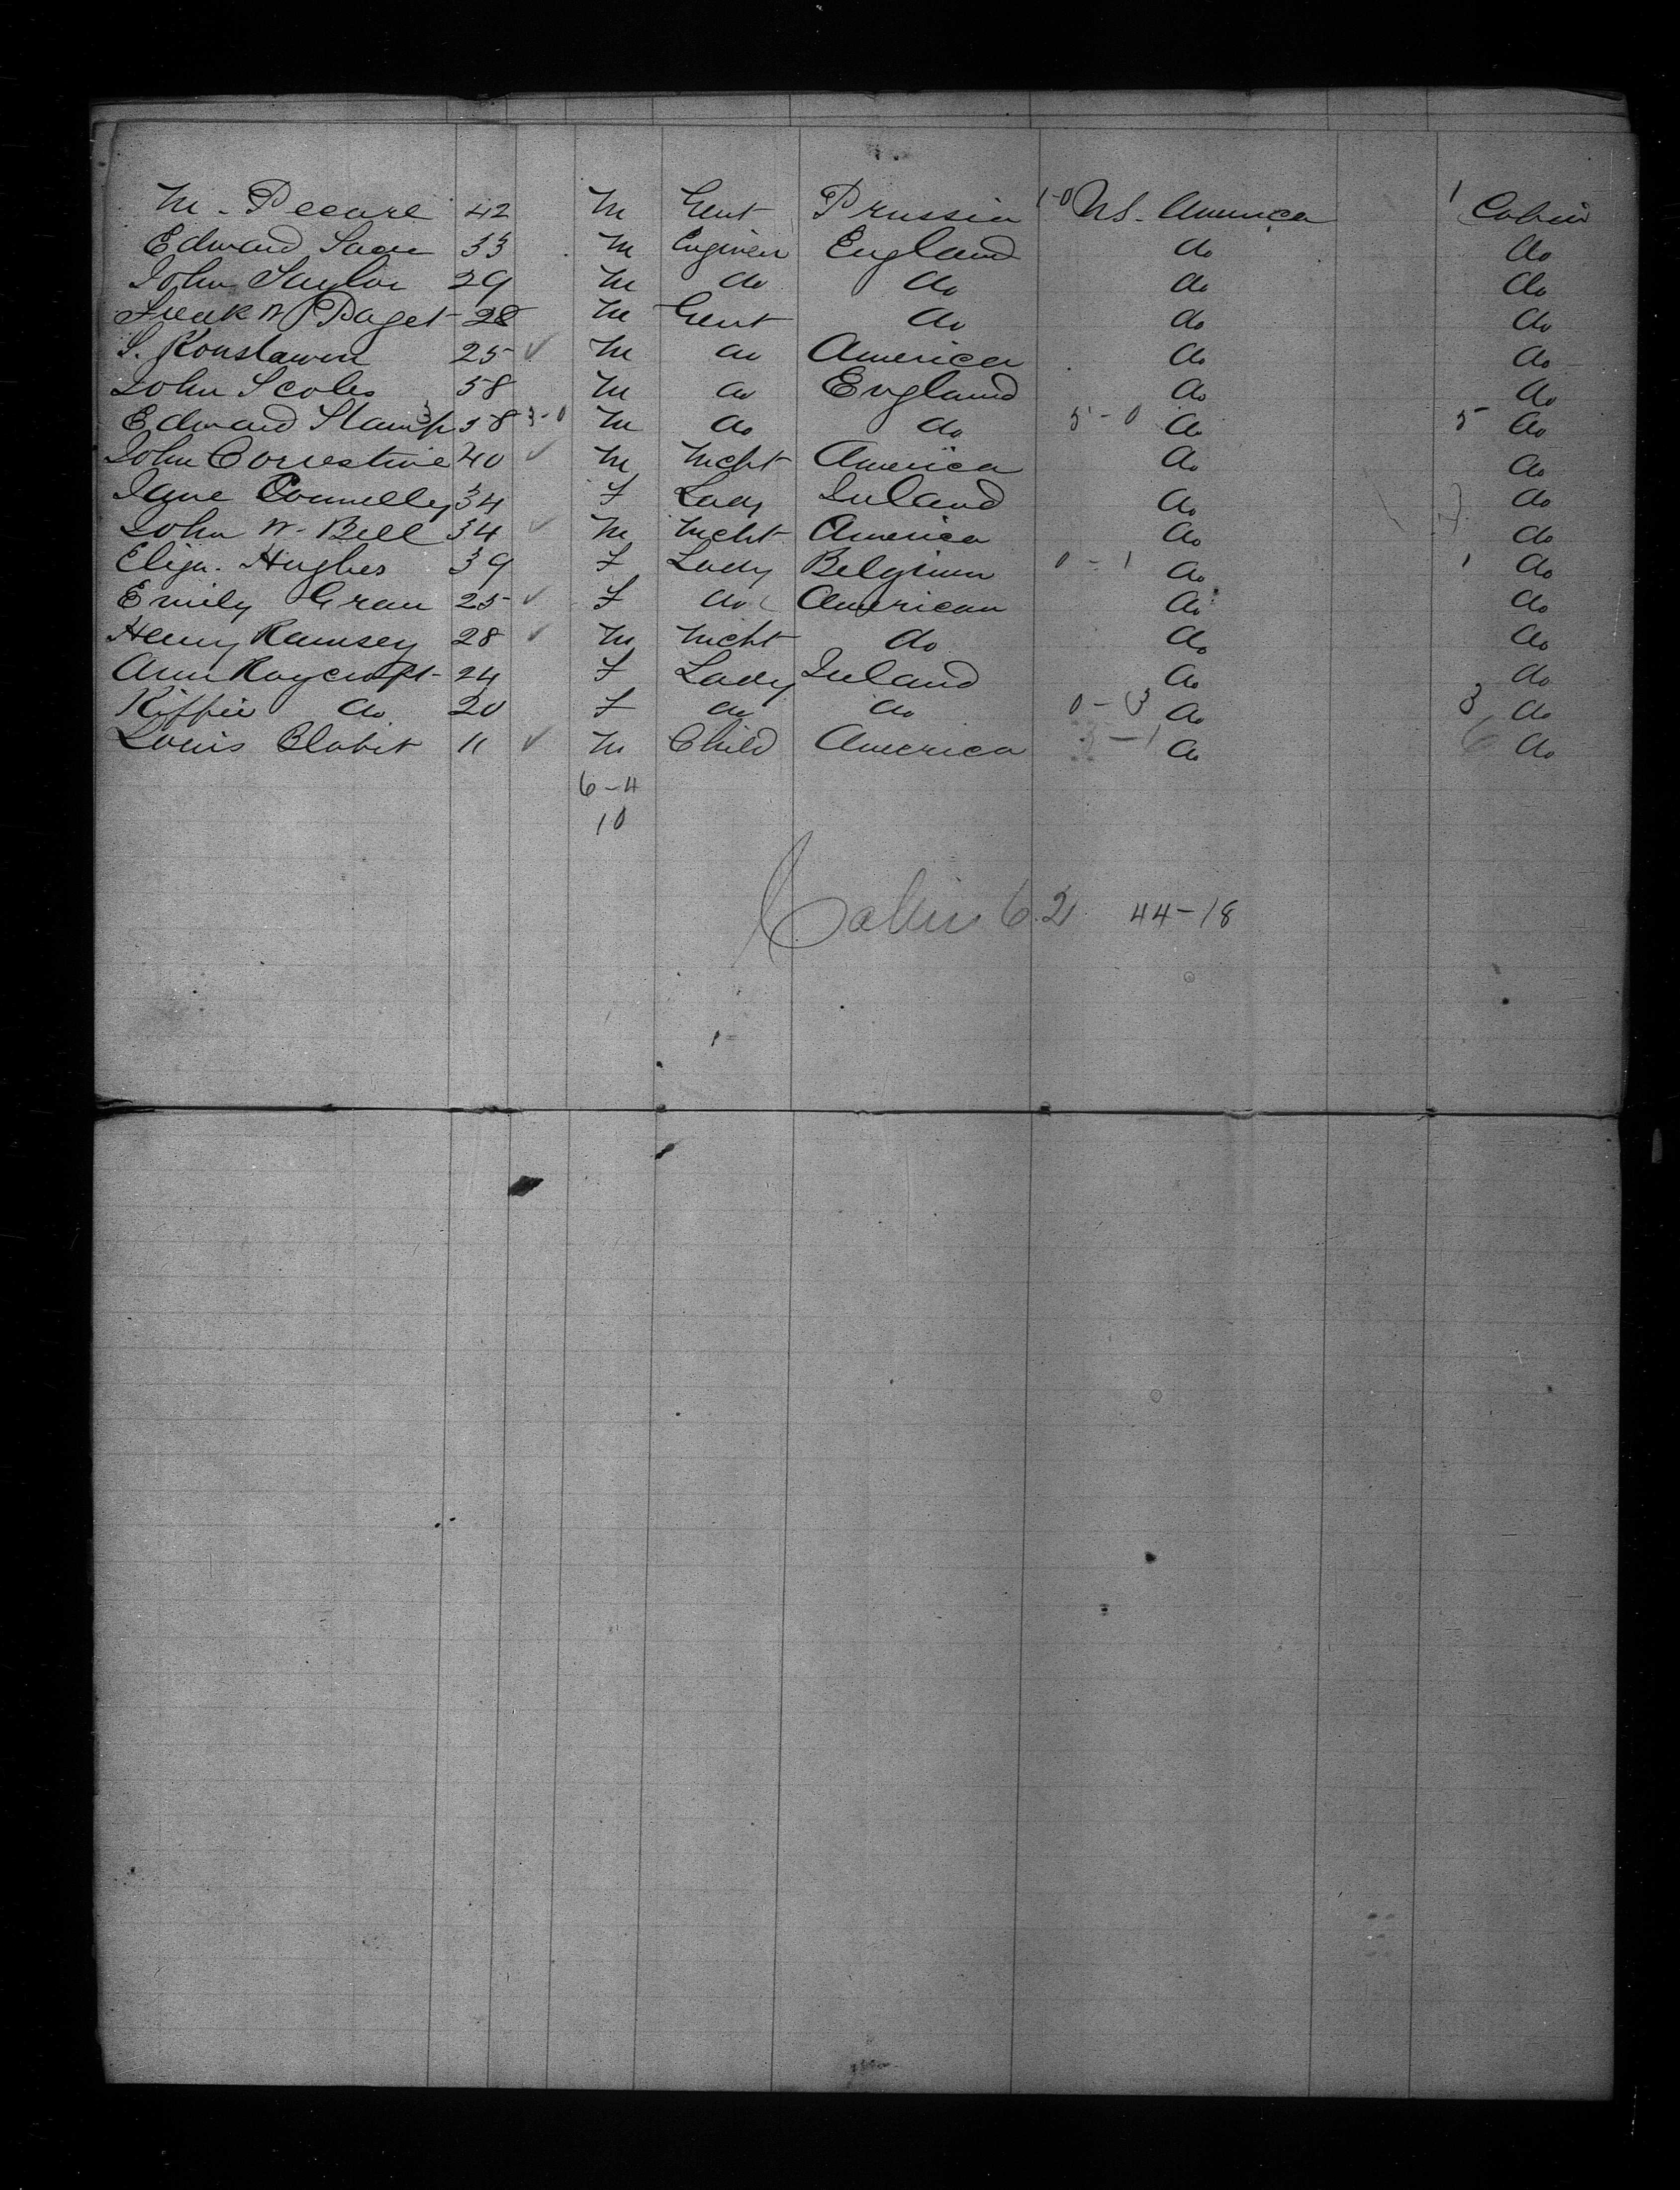 M. Pecare 42 M Gent Prussia 1-0 US. America 1 Cabin
Edward 33 M Engineer England do do
John Taylor 29 M do do do do
Frank W Paget 28 M Gent do do do
S. 25 ✓ M do America do do
John Scoles 58 M do England do do
Edward Stamp 58 3-0 M do do 5-0 do 5 do
John 40 ✓ M Mcht America do do
Jane Connelly 34 F Lady Ireland do do
John W. Bell 34 ✓ M Mcht America do do
Eliza. Hughes 39 F Lady Belgium 0-1 do 1 do
Emily Grau 25 ✓ F do American do do
Henry Ramsey 28 ✓ M Mcht do do do
Ann Raycroft 24 F Lady Ireland do do
Kiffie do 20 F do do 0-3 do 3 do
Louis Blabit 11 ✓ M Child America 3-1 do 6 do
6-4
10
Cabin 62 44-18